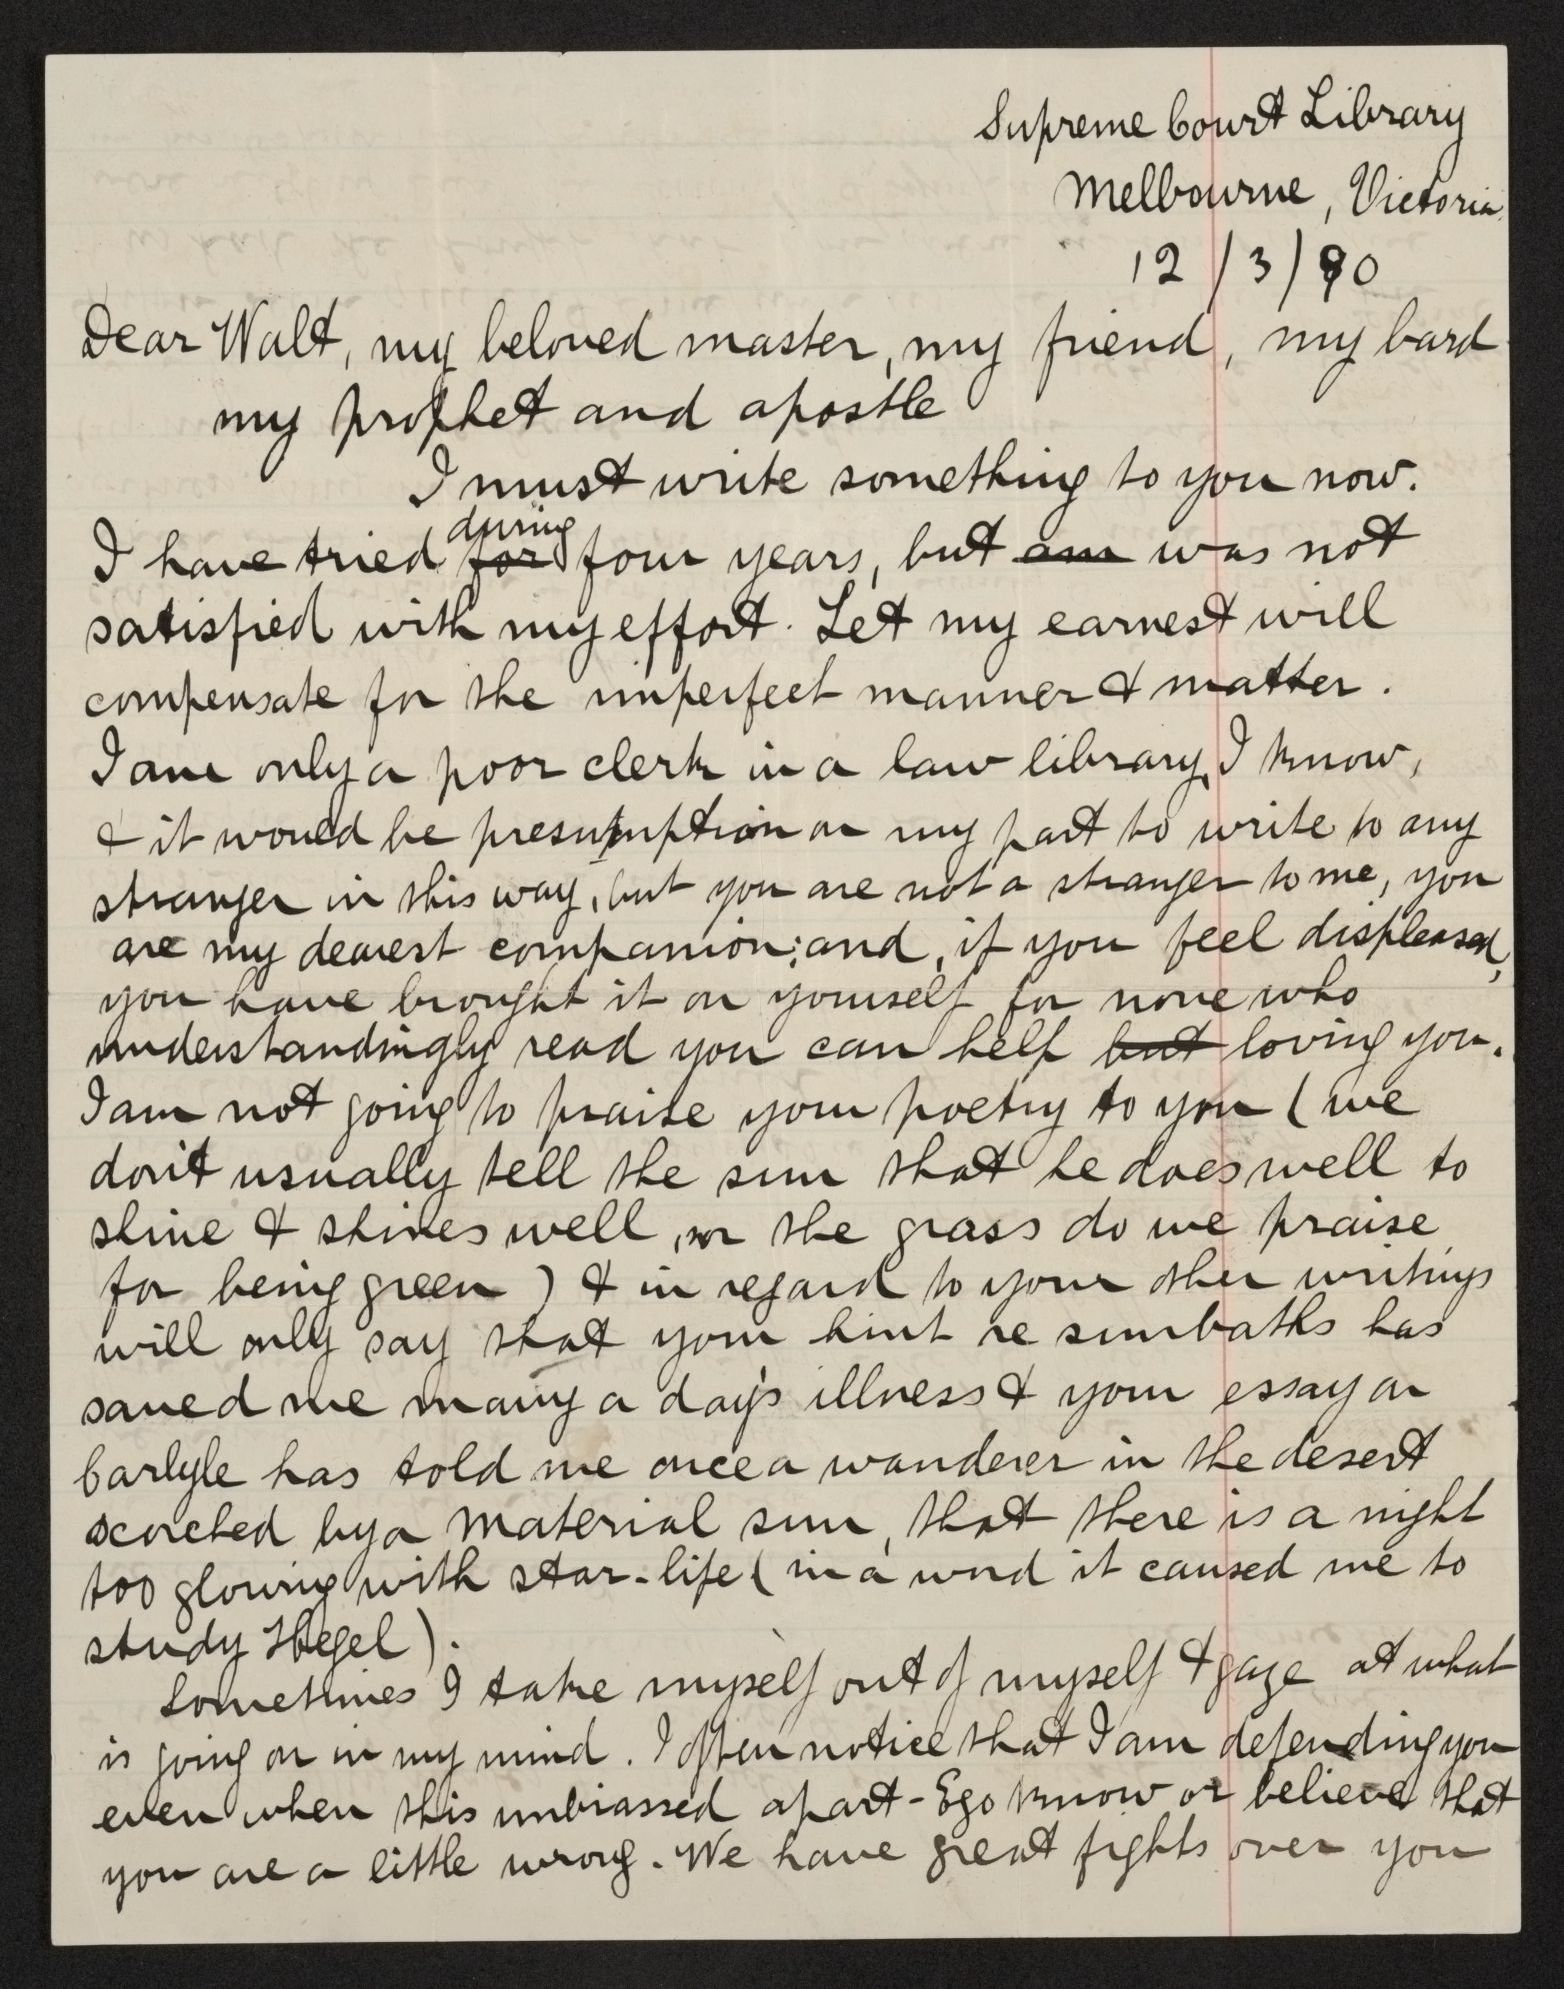 Supreme Court Library
Melbourne, Victoria
12/3/90
Dear Walt, my beloved master, my friend, my bard
my prophet and apostle
I must write something to you now.
during
I have tried for four years, but am was not
satisfied with my effort. Let my earnest will
compensate for the imperfect manner & matter.
I am only a poor clerk in a law library, I know,
& it would be presumption on my part to write to any
stranger in this way, but you are not a stranger to me, you
are my dearest companion; and, if you feel displeased,
you have brought it on yourself for none who
understandingly read you can help but loving you.
I am not going to praise your poetry to you (we
don't usually tell the sun that he does well to
shine & shines well, nor the grass do we praise
for being green) & in regard to your other writings
will only say that your hint re sunbaths has
saved me many a day's illness & your essay on
Carlyle has told me once a wanderer in the desert
scorched by a material sun, that there is a night
too glowing with star-life (in a word it caused me to
study Hegel).
Sometimes I take myself out of myself & gaze at what
is going on in my mind. I often notice that I am defending you
even when this unbiassed apart-Ego know or believe that
you are a little wrong. We have great fights over you